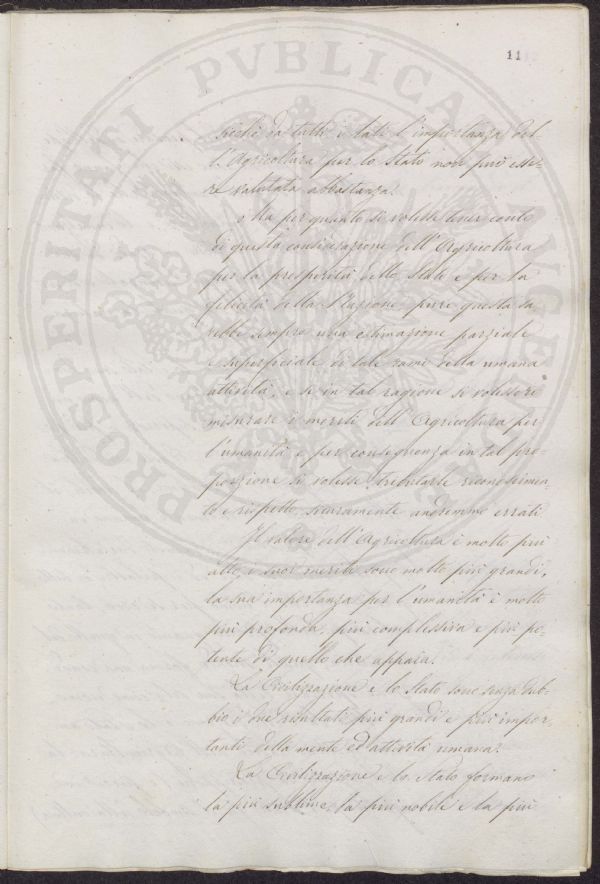 11
PROSPERITATI PVBLICAE AVGENDAE
sicchè da tutti i lati l'importanza del-
l'Agricoltura per lo Stato non può esse-
re valutata abbastanza.
Ma per quanto si volesse tener conto
di questa considerazione dell'Agricoltura
per la prosperità dello Stato e per la
felicità della Nazione pure questa sa-
rebbe sempre una estimazione parziale
e superficiale di tale ramo della umana
attività, e se in tal ragione si volesse
misurare i meriti dell'Agricoltura per
l'umanità e per conseguenza in tal pro-
porzione si volesse tributarle riconoscimen-
to e rispetto, sicuramente andremmo errati
Il valore dell'Agricoltura è molto più
alto, i suoi meriti sono molto più grandi,
la sua importanza per l'umanità è molto
più profonda, più complessiva e più po-
tente di quello che appaia.
La Civilizzazione e lo Stato sono senza dub-
bio i due risultati più grandi e più impor-
tanti della mente ed attività umana.
La Civilizzazione e lo Stato formano
la più sublime, la più nobile e la più